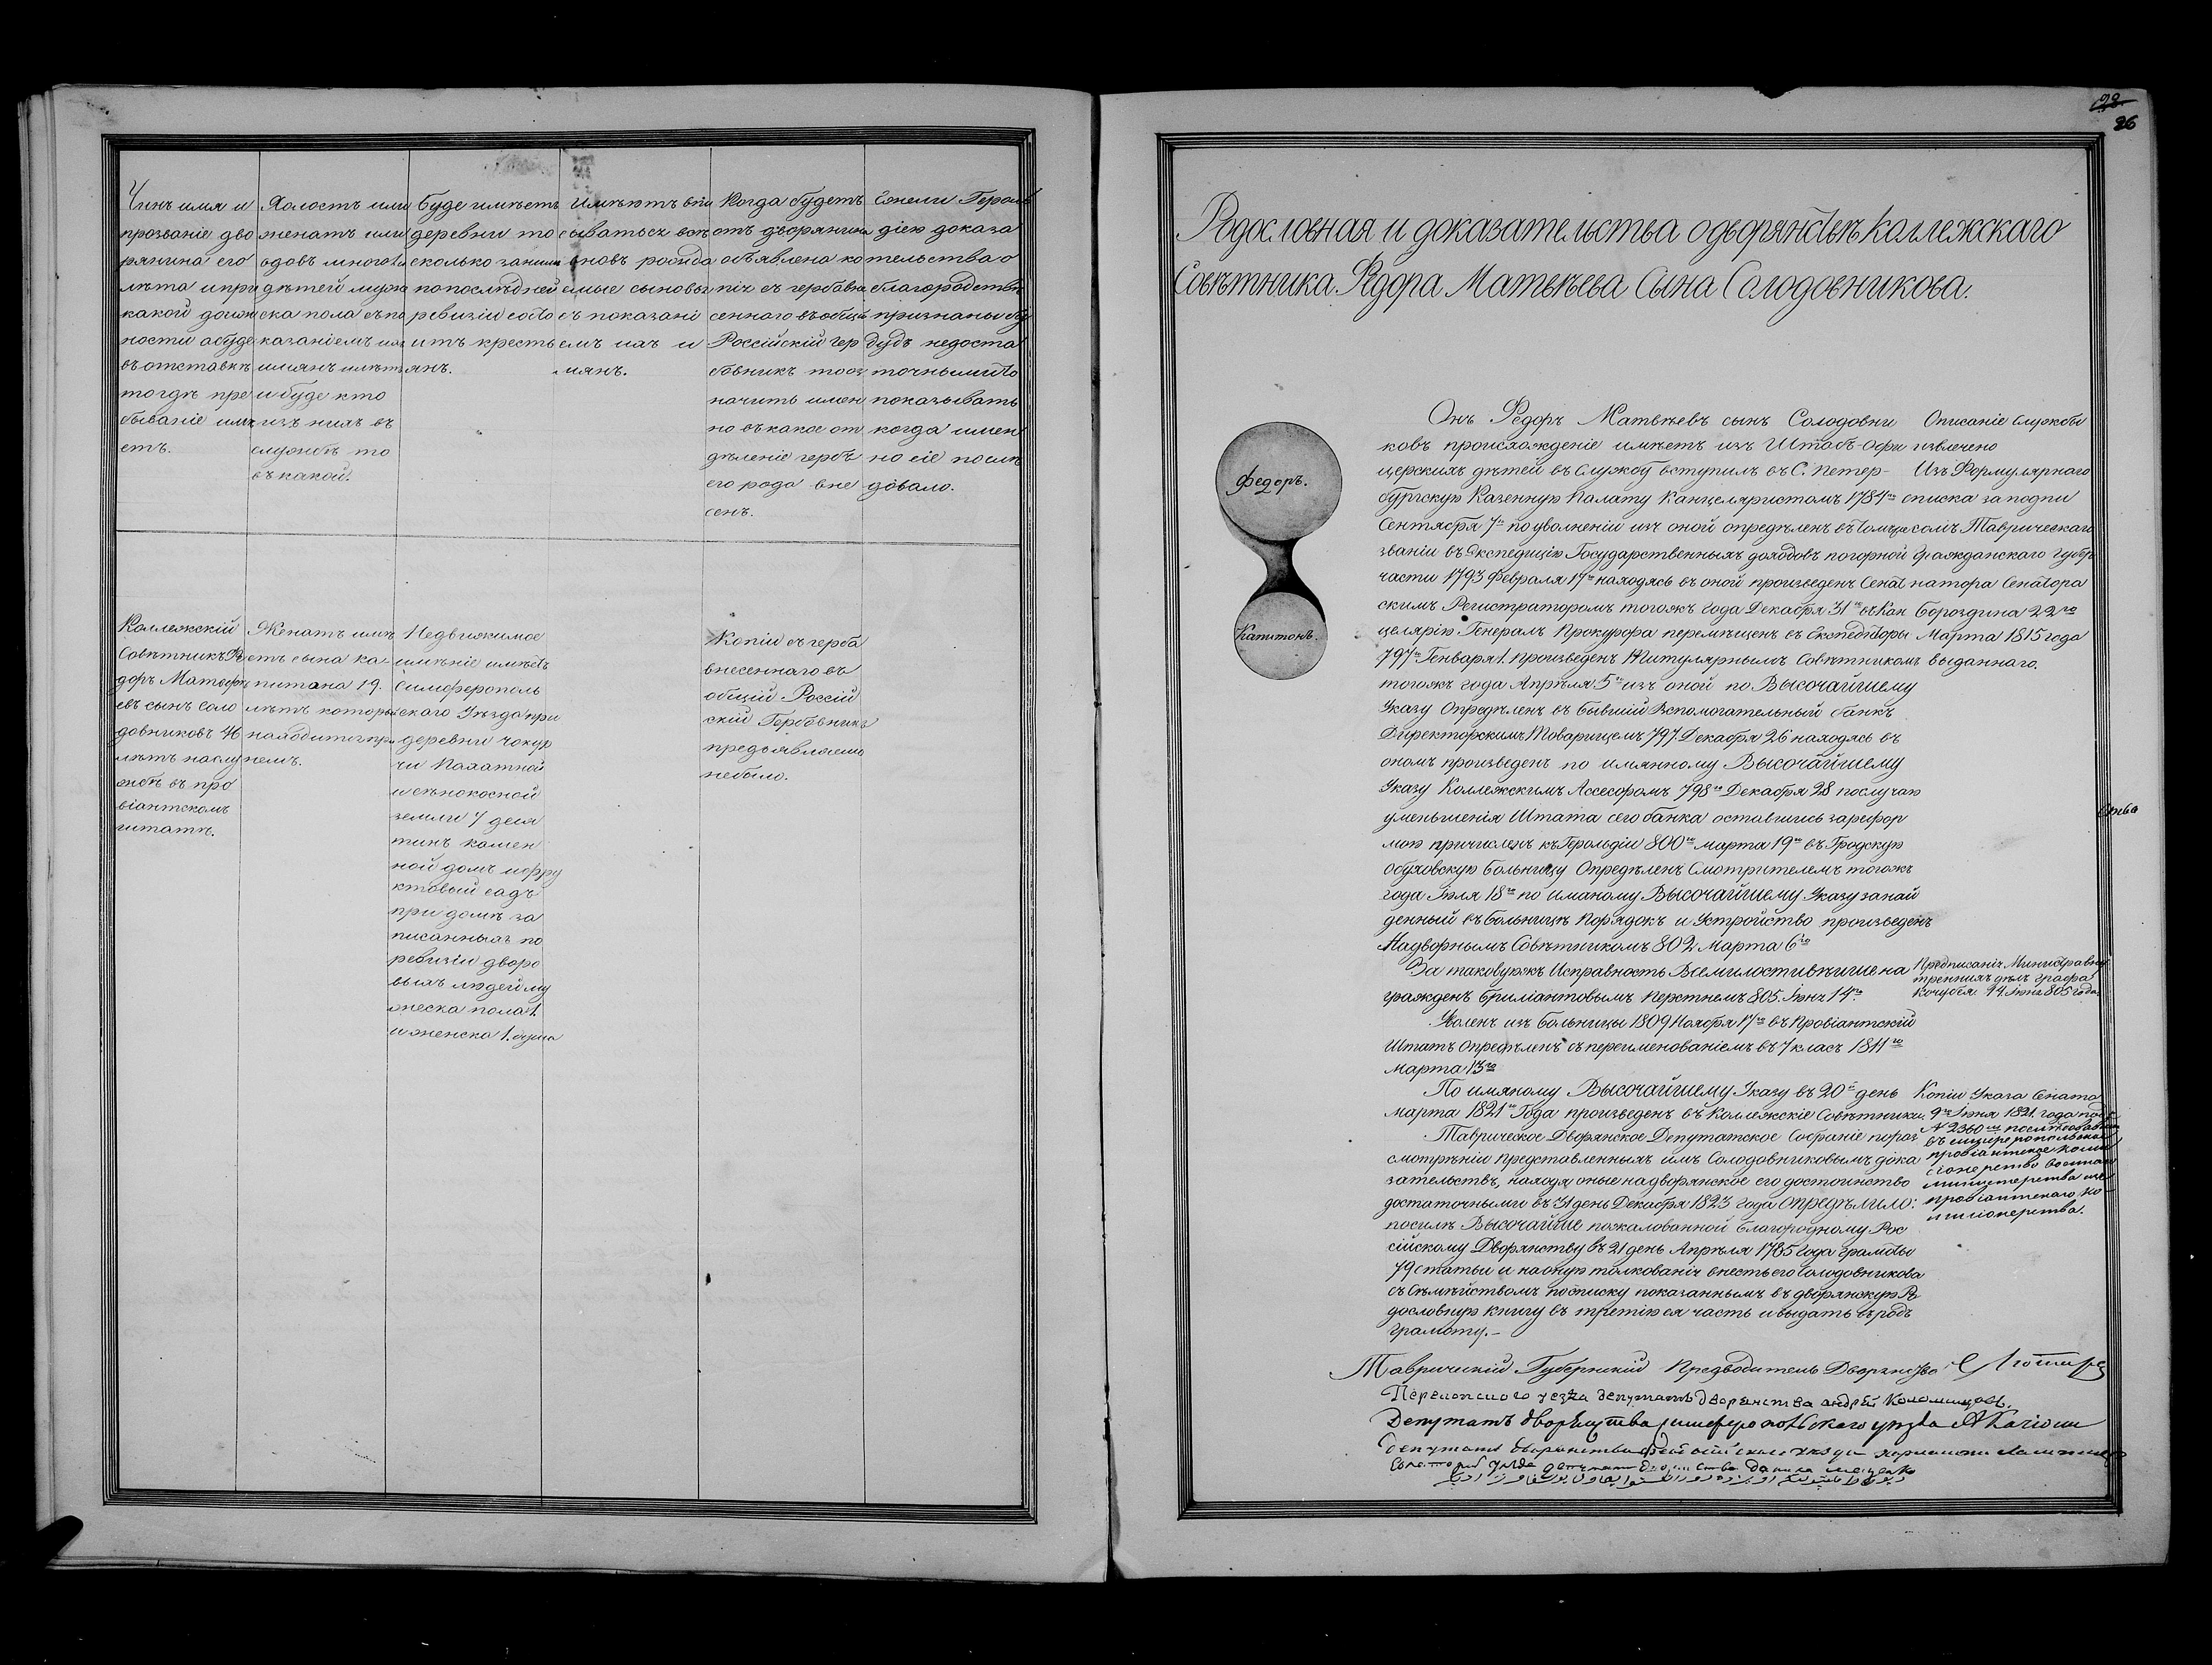 Чинъ имя и
прозваніе дво
рянина его
лѣта и при
какой долж
ности а буде
въ отставкѣ
то гдѣ пре
бываніе имѣ
етъ.
Холостъ или
женатъ или
вдовъ много ли
дѣтей муж
ска пола съ по
казаніемъ ихъ
имянъ и лѣтъ
и буде кто
изъ нихъ въ
службѣ то
въ какой.
Буде имѣетъ
деревни то
сколько заними
по послѣдней
ревизіи состо
итъ кресть
янъ.
Имѣютъ впи
сываться вся
вновъ рожда
емые сыновья
съ показані
емъ ихъ и
мянъ.
Когда будетъ
отъ дворянина
объявлена ко
пія съ герба вне
сеннаго въ общій
Россійскій гер
бовникъ то оз
начить имен
но въ какое от
дѣленіе гербъ
его рода вне
сенъ.
Ежели Героль
діею доказа
тельства о
благородствѣ
признаны бу
дутъ недоста
точными то
показывать
когда имен
но сіе послѣ
довало.
Коллежскій
Совѣтникъ Ѳе
доръ Матвѣ
евъ сынъ Соло
довниковъ 46
лѣтъ на слу
жбѣ въ про
віантскомъ
штатѣ.
Женатъ имѣ
етъ сына ка
питона 19.
лѣтъ которы
находится при
немъ.
Недвижимое
имѣніе имѣетъ
Симферополь
скаго Уѣзда при
деревни чокур
чи Пахатной
и сѣнокосной
земли 7 деся
тинъ камен
ной домъ и фру
ктовый садъ
при домѣ за
писанныхъ по
ревизіи дворо
выхъ людей му
жеска пола 1.
и женска 1. душа
Копіи съ герба
внесеннаго въ
общій Россій
скій Гербовникъ
предъявляемо
небыло.
26
Родословная и доказательства о дворянствѣ Коллежскаго
Совѣтника Ѳедора Матвѣева Сына Солодовникова.
Федоръ.
Капитонъ.
Онъ Ѳедоръ Матвѣевъ сынъ Солодовни
ковъ происхожденіе имѣетъ изъ Штабъ-Офи
церскихъ дѣтей въ Службу вступилъ въ С. Петер-
бургскую Казенную Палату Канцеляристомъ 1784го
Сентября 7го по уволненіи изъ оной опредѣленъ въ томже
званіи въ Экспедицію Государственныхъ доходовъ по горной
части 1793 Февраля 17го находясь въ оной произведенъ Сенат
скимъ Регистраторомъ тогожъ года Декабря 31го въ Кан
целярію Генералъ Прокурора перемѣщенъ въ Експедиторы
797го Генваря 1. произведенъ Титулярнымъ Совѣтникомъ
тогожъ года Апрѣля 5го изъ оной по Высочайшему
Указу Опредѣленъ въ бывшій Вспомогательный банкъ
Директорскимъ Товарищемъ 797. Декабря 26 находясь въ
ономъ произведенъ по имянному Высочайшему
Указу Коллежскимъ Ассесоромъ 798го Декабря 28 по случаю
уменьшенія Штата сего банка оставшись за рифор
мою причисленъ къ Герольдіи 800го марта 19го въ Гродскую
Обуховскую больницу Опредѣленъ Смотрителемъ тогожъ
года Іюля 18го по имяному Высочайшему Указу за най
денный въ больницѣ Порядокъ и Устройство произведенъ
Надворнымъ Совѣтникомъ 802 Марта 6го
За таковуюжъ Исправность Всемилостивѣйше на
гражденъ бриліантовымъ Перстнемъ 805. Іюня 14го.
Уволенъ изъ Больницы 1809 Ноября 17го въ Провіантскій
Штатъ Опредѣленъ съ переименованіемъ въ 7 класъ 1811го
Марта 13го
По имяному Высочайшему Указу въ 20й день
марта 1821го Года произведенъ въ Коллежскіе Совѣтники.
Таврическое Дворянское Депутатское Собраніе по раз
смотрѣніи представленныхъ имъ Солодовниковымъ дока
зательствъ, находя оные на дворянское его достоинство
достаточными въ 31 день Декабря 1823 года опредѣлило:
посилѣ Высочайше пожалованной Благородному Рос
сійскому Дворянству въ 21 день Апрѣля 1785 года Грамоты
79 статьи и на оную толкованія внесть его Солодовникова
съ Семѣйствомъ по списку показаннымъ въ дворянскую Ро
дословную книгу въ третію ея часть и выдать въ родъ
грамоту.-
Описаніе Службы
извлечено
Изъ Формулярнаго
списка за подпи
сомъ Таврическаго
Гражданскаго Губер
натора Сенатора
Бороздина 22го
Марта 1815 года
выданнаго.
ства
Предписаніи Министра вну
тренныхъ дѣлъ графа
Кочубея 14. Іюня 805 года
Копіи Указа Сената
9го Іюня 1821. года подъ
№ 2360
въ симферопольское
провіантское коми
сіонерство
министерства
провіантскаго ко
мисіонерства.
Таврическій Губернскій Предводитель Дворянства
Перекопского уезда депутатъ дворянства андрей Коломицовъ.
Депутатъ дворянства симферопольского уезда А Качіони
депутатъ дворянства уезда
уезда депутатъ дворянства данила